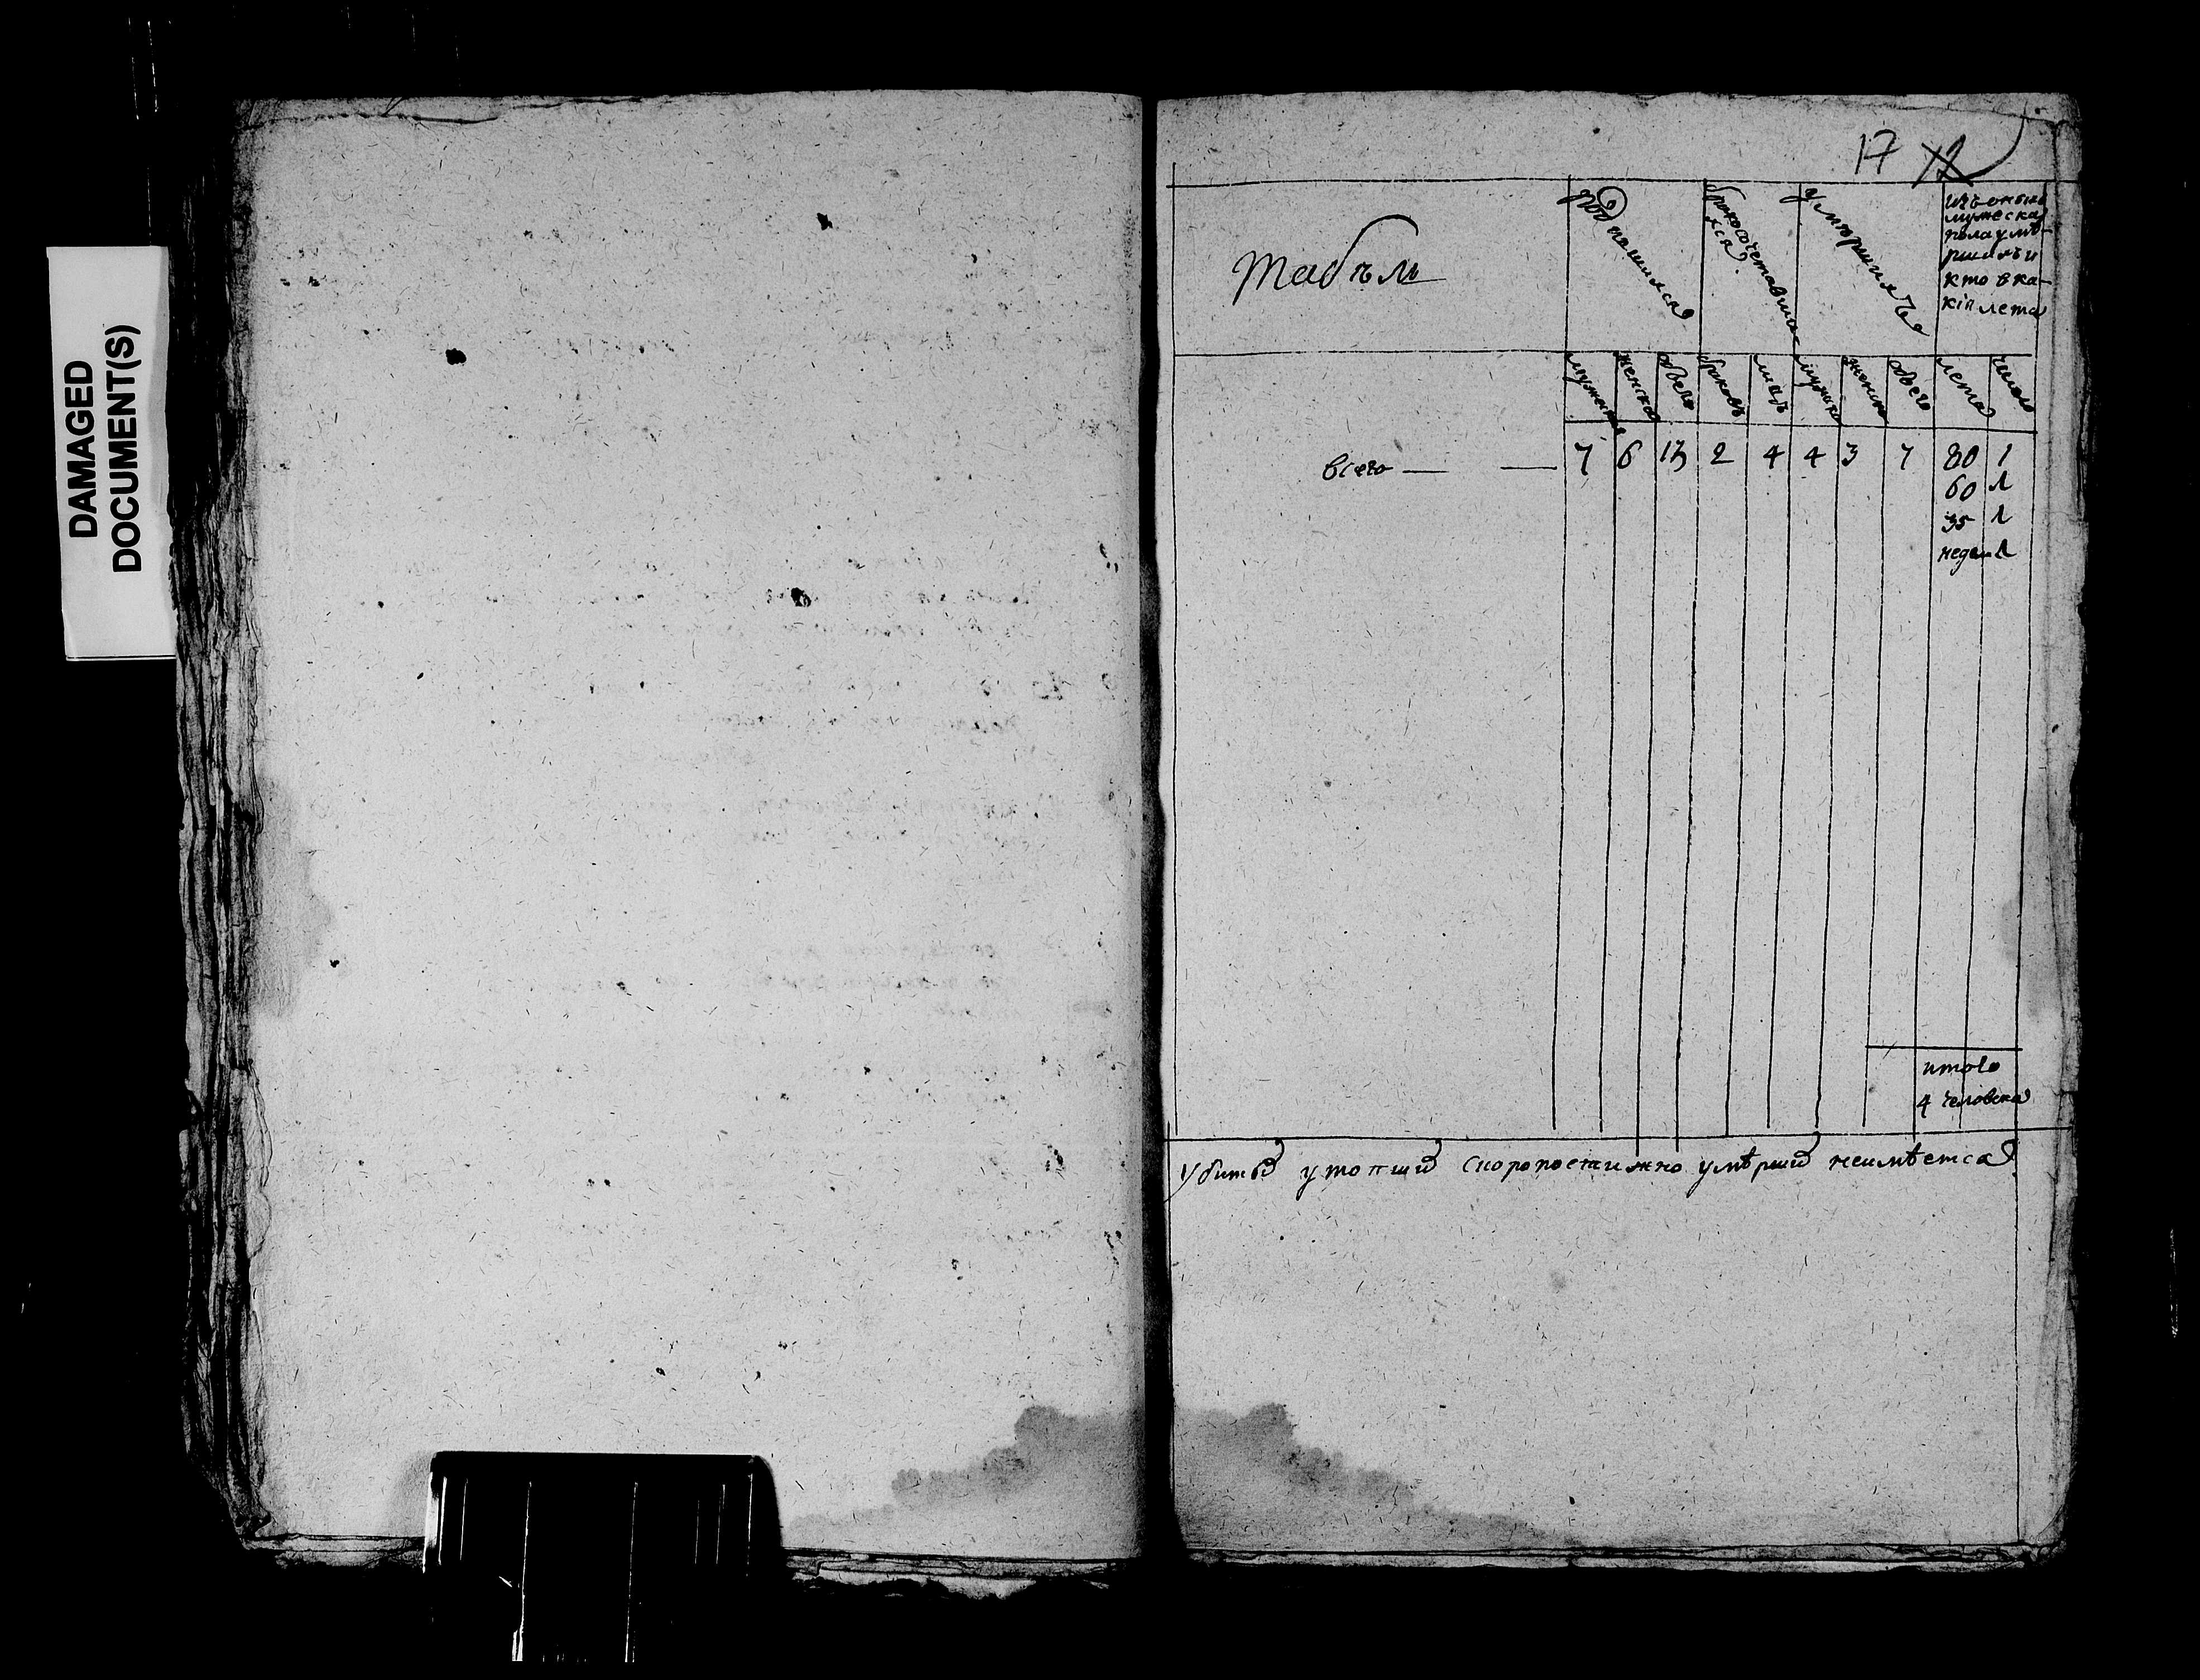 DAMAGED
DOCUMENT(S)
17 12
табѣль
родившихся
бракосочетавших
ся
умерших
изъ оных
мужеска
пола умѣ-
ршихъ и
кто в ка-
кія лета
мужеска женска обоего браковъ лицъ мужска женска обоего лета число
всего — — 7 6 13 2 4 4 3 7 80 1
60 1
35 1
недель 1
итого
4 человека
Убитыхъ утопших скоропостижно умѣрших неимѣется